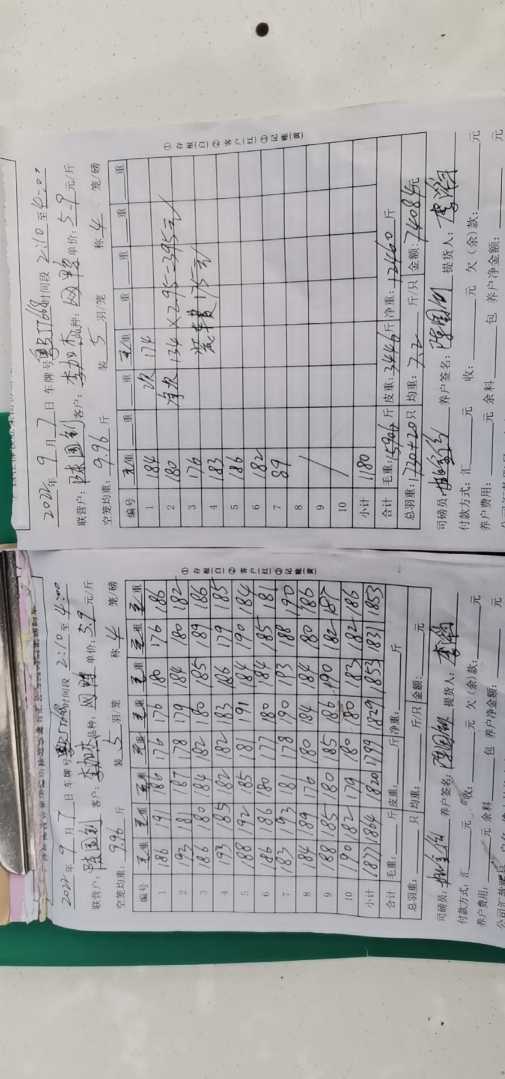 2022年 9月 7日 车牌号 时间段 2:10 至 4:00
联营户: 陈国利 客户: 李加杰 品种: 单价: 5.9 元/斤
空笼均重: 9.96 斤 装 5 羽/笼 称 4 笼/磅
编号 毛重 毛重 毛重 毛重 毛重 毛重 毛重 毛重
1 186 191 186 176 176 180 176 186
2 193 181 187 178 179 184 180 182
3 186 180 184 182 180 185 189 186
4 193 185 182 182 183 186 179 185
5 188 192 185 181 191 184 190 184
6 186 186 180 177 180 184 185 181
7 183 193 181 178 190 193 188 190
8 184 189 176 180 184 184 180 186
9 188 185 180 185 186 190 182 187
10 190 182 179 180 180 183 182 186
小计 1877 1864 1820 1799 1829 1853 1831 1853
合计 毛重: 斤 皮重: 斤 净重: 斤
总羽重: 只 均重: 斤/只 金额: 元
司磅员: 养户签名: 陈国利 提货人:
付款方式: 汇 元 收: 元 欠(余)款: 元
养户费用: 元 余料 包 养户净金额: 元
①存根白 ②客户红 ③记账黄
2022年 9月 7日 车牌号 时间段 2:10 至 4:00
联营户: 陈国利 客户: 李加杰 品种: 单价: 5.9 元/斤
空笼均重: 9.96 斤 装 5 羽/笼 称 4 笼/磅
编号 毛重 重 毛重 重 重 重 重
1 184 2次 174
2 180 净欠 134×2.95=395元
3 176 175元
4 183
5 186
6 182
7 89
8
9
10
小计 1180
合计 毛重: 15906 斤 皮重: 3446 斤 净重: 12460 斤
总羽重: 1730+20 只 均重: 7.2 斤/只 金额: 74084元
司磅员: 养户签名: 陈国利 提货人:
付款方式: 汇 元 收: 元 欠(余)款: 元
养户费用: 元 余料 包 养户净金额: 元
①存根白 ②客户红 ③记账黄